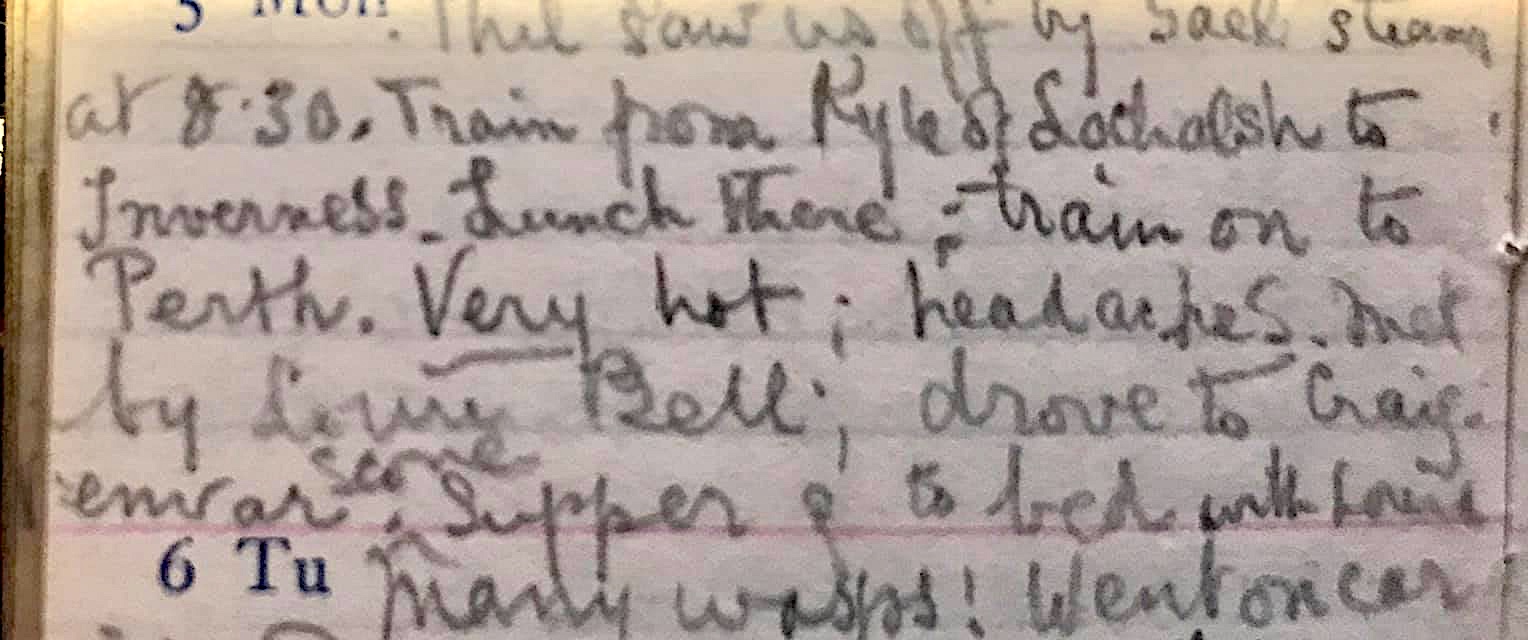 5 Mon. Phil saw us off by back steam
at 8.30. Train from Kyle of Lochalsh to
Inverness. Lunch there; train on to
Perth. Very hot; headaches. Met
by Bell; drove to Craig-
envar. Scone
Supper & to bed with
6 Tu Many wasps! Went on car